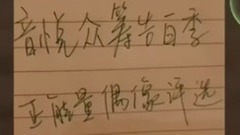 音悦众筹告白季
正能量偶像评选